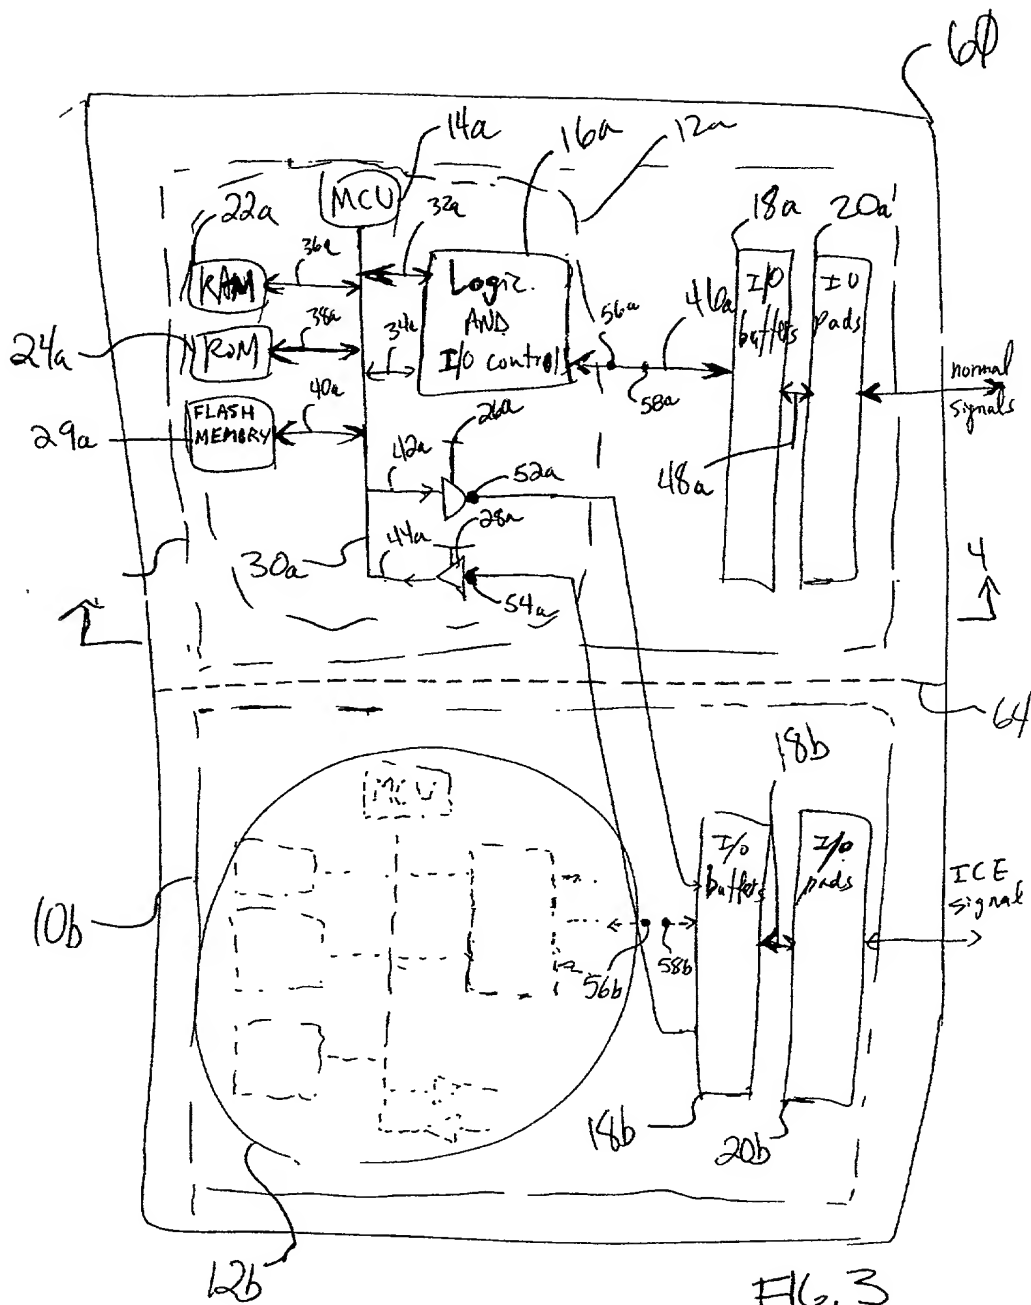 60
14a
16a
12a
MCU
22a
32a
18a
20a'
36a
RAM
Logic
AND
I/O control
I/O
buffers
I/O
pads
56a
46a
38a
34a
24a
ROM
58a
normal
signals
40a
FLASH
MEMORY
29a
26a
42a
52a
48a
28a
30a
44a
54a
4
64
18b
MCU
I/O
buffers
I/O
pads
ICE
signal
10b
56b
58b
18b
20b
12b
FIG. 3